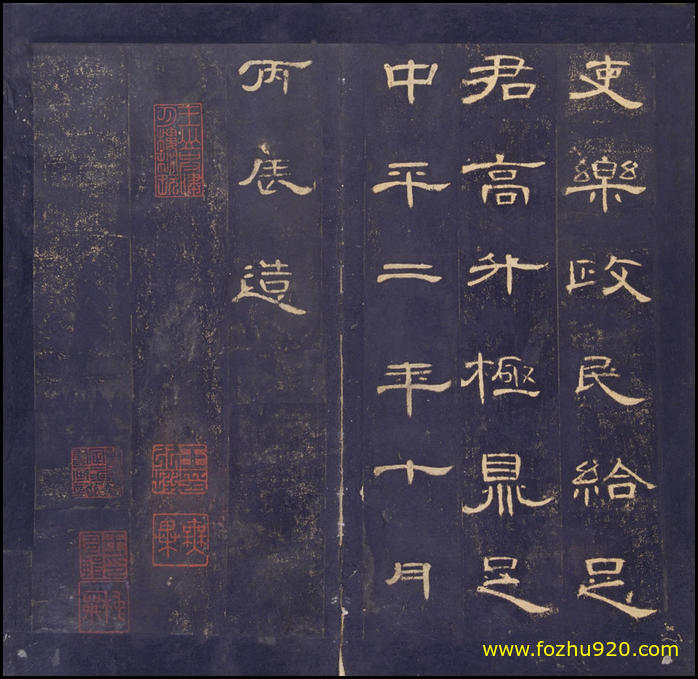 吏樂政民給足
君高升極鼎足
中平二年十月
丙辰造
www.fozhu920.com